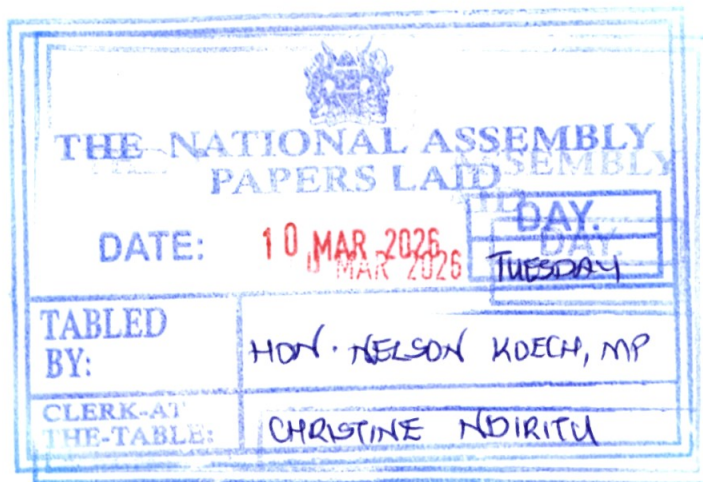 THE NATIONAL ASSEMBLY
PAPERS LAID
DATE: 10 MAR 2026
DAY.
TUESDAY
TABLED BY:
HON. NELSON KOECH, MP
CLERK-AT
THE-TABLE:
CHRISTINE NDIRITU